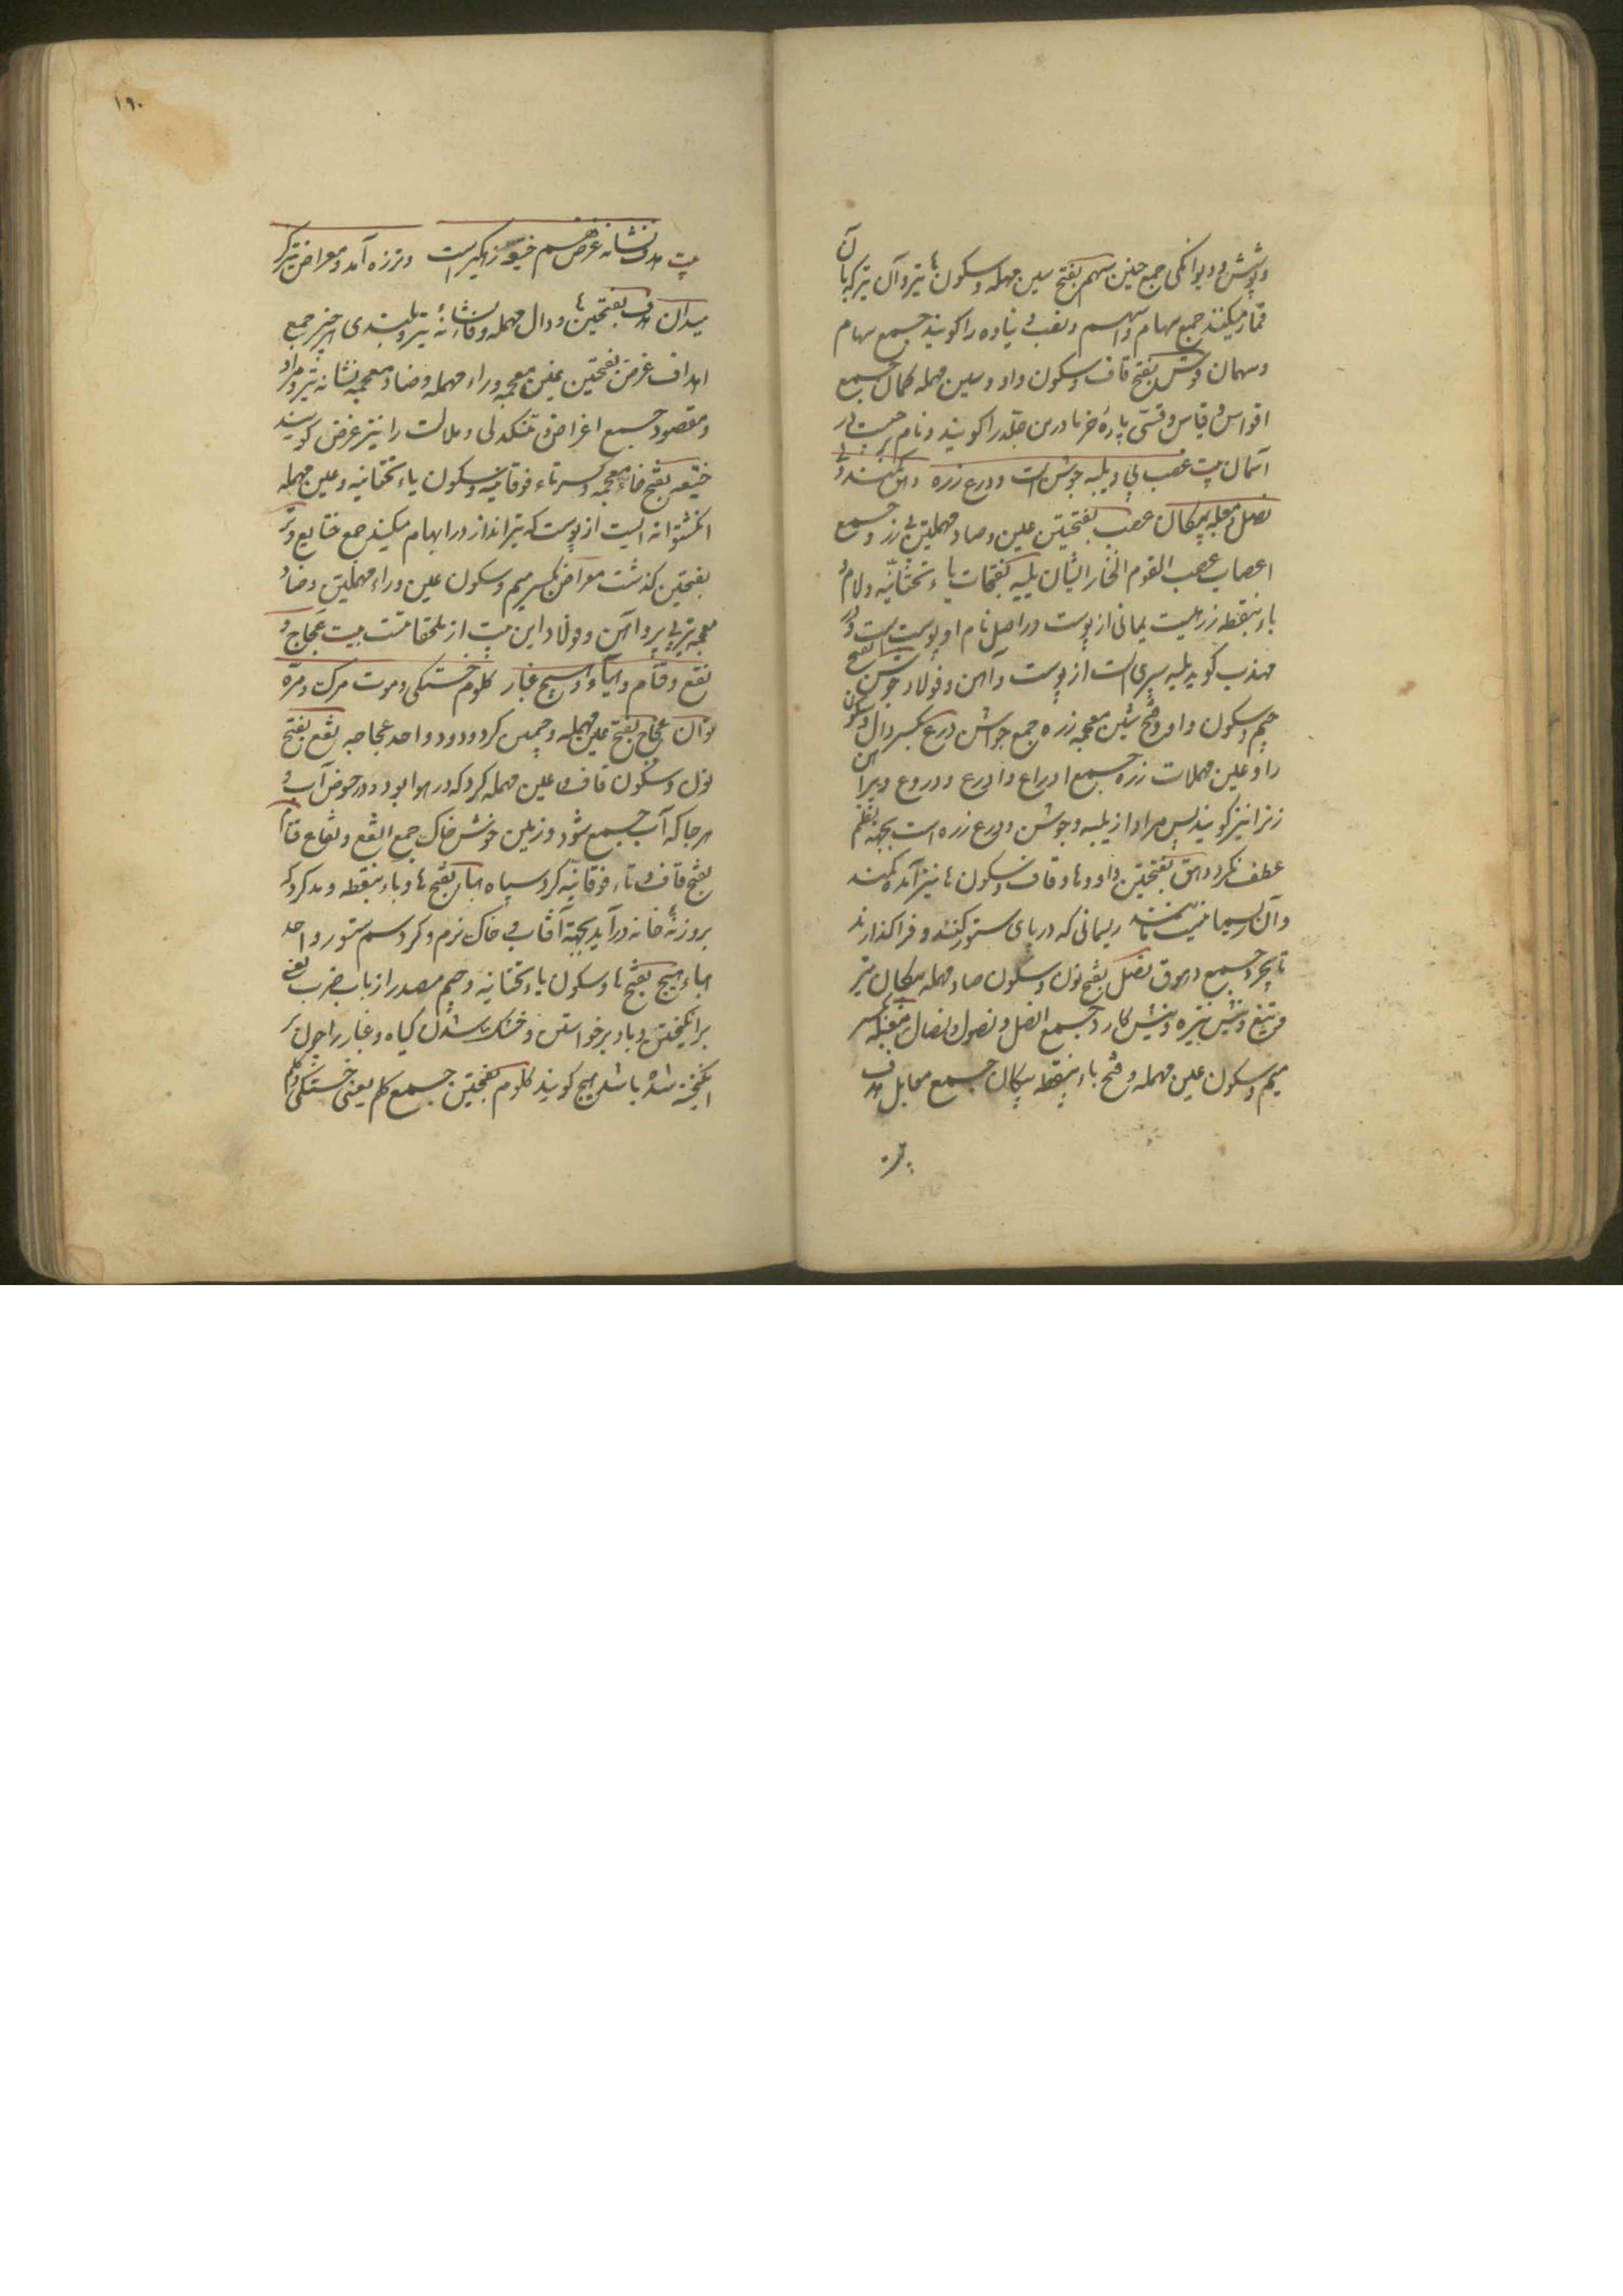 و پوشش و دیوانگی جمع جنن سهم بفتح سین مهمله و سکون ها تیر و آن تیر که بآن
قمار میکنند جمع سهام و اسهم و نصیب زیاده را گویند جمع سهام
و سهمان قوس بفتح قاف و سکون واو و سین مهمله کمان جمع
اقواس و قیاس و قسی پارهٔ خرما در بن جلّه را گویند و نام برجیست در
آسمان بیت عصب پی و یلبه جوشن است و درع زره وهق کمند و
نصل و معبله پیکان عصب بفتحتین عین و صاد مهملتین پی زرد جمع
اعصاب عصب القوم الخار ایشان یلبه بفتحات یاء تحتانیه و لام و
باء بنقطه زرهیست یمانی از پوست و در اصل نام او پوست است و در
مهذب گوید یلبه سپری است از پوست و آهن و فولاد جوشن بفتح
جیم و سکون واو و فتح شین معجمه زره جمع جواشن درع بکسر دال و سکون
را و عین مهملات زره جمع ادراع و ادرع و دروع و پیراهن
زنرا نیز گویند پس مراد از یلبه و جوشن و درع زره است بجهة نظم
عطف نکرد وهق بفتحتین واو و ها و قاف و سکون ها نیز آمده کمند
و آن ریسمانیست ریسمانی که در پای ستور کنند و فرا گذارند
تا بچرد جمع وهوق نصل بفتح نون و سکون صاد مهمله پیکان تیر
و تیغ و نیش نیزه و نیش کارد جمع انصل و نصول و نصال معبله بکسر
میم و سکون عین مهمله و فتح باء بنقطه پیکان جمع معابل هدف
بیت
١٩٠
بیت هدف نشانه غرض هم ختیعه زهگیر است وتر زه آمد و معراض تیر
میدان هدف بفتحتین ها و دال مهمله و فاء نشانهٔ تیر و بلندی هر چیز جمع
اهداف غرض بفتحتین غین معجمه و راء مهمله و ضاد معجمه نشانه تیر و مراد
و مقصود جمع اغراض و تنگدلی و ملالت را نیز غرض گویند
ختیعه بفتح خاء معجمه و کسر تاء فوقانیه و سکون یاء تحتانیه و عین مهمله
انگشتوانه ایست از پوست که تیرانداز در ابهام میکند جمع ختایع وتر
بفتحتین گذشت معراض بکسر میم و سکون عین و راء مهملتین و ضاد
معجمه تیر بی پر و آهن و فولاد این بیت از ملحقاتست بیت عجاج و
نقع و قتام و هباء و هیج غبار کلوم خستگی و موت مرگ و مرّه
توان عجاج بفتح عین مهمله و جیمین گرد و دود واحد عجاجه نقع بفتح
نون و سکون قاف و عین مهمله گرد که در هوا بود و در حوض آب و
هر جا که آب جمع شود و زمین خوش خاک جمع انقع و نقاع قتام
بفتح قاف و تاء فوقانیه گرد سیاه هباء بفتح ها و باء بنقطه و مد گرد که
بروزنهٔ خانه در آید بجهة آفتاب و خاک نرم و گرد سم ستور واحد
هباءه هیج بفتح ها و سکون یاء تحتانیه و جیم مصدر از باب ضرب یعنی
برانگیختن و باد برخواستن و خشک شدن گیاه و غبار را چون بر
انگیخته شده باشد هیج گویند کلوم بفتحتین جمع کلم یعنی خستگی و کلم